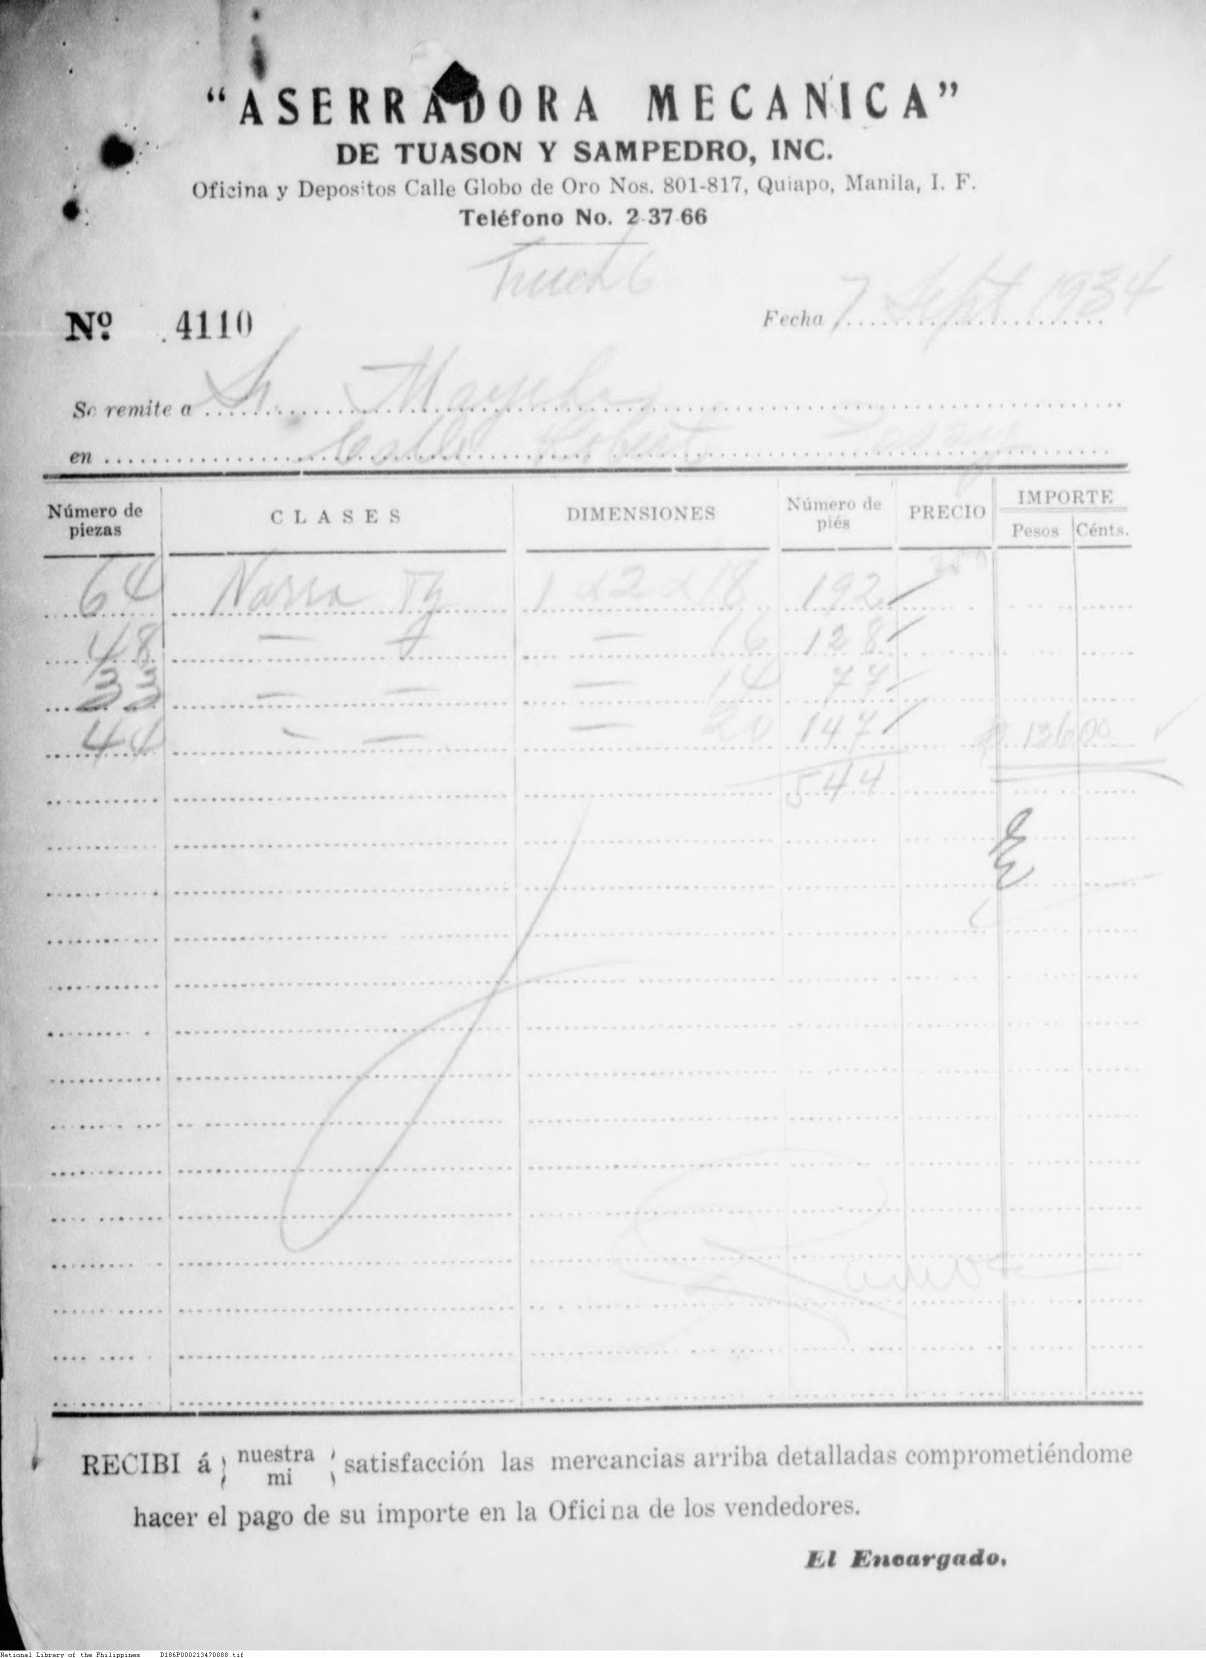 "ASERRADORA MECANICA"
DE TUASON Y SAMPEDRO, INC.
Oficina y Depositos Calle Globo de Oro Nos. 801-817, Quiapo, Manila, I. F.
Teléfono No. 2-37-66
Truck 6
Nº 4110 Fecha 7 Sept 1934
Se remite a Sr
en Calle
Número de piezas CLASES DIMENSIONES Número de piés PRECIO IMPORTE Pesos Cénts.
64 Narra Tg 1 x 2 x 18 192
48 — — — 16 128
33 — — — 14 77
44 — — — 20 147 136 00
544
RECIBI á nuestra mi satisfacción las mercancias arriba detalladas comprometiéndome
hacer el pago de su importe en la Oficina de los vendedores.
El Encargado,
National Library of the Philippines D186P000213470088.tif